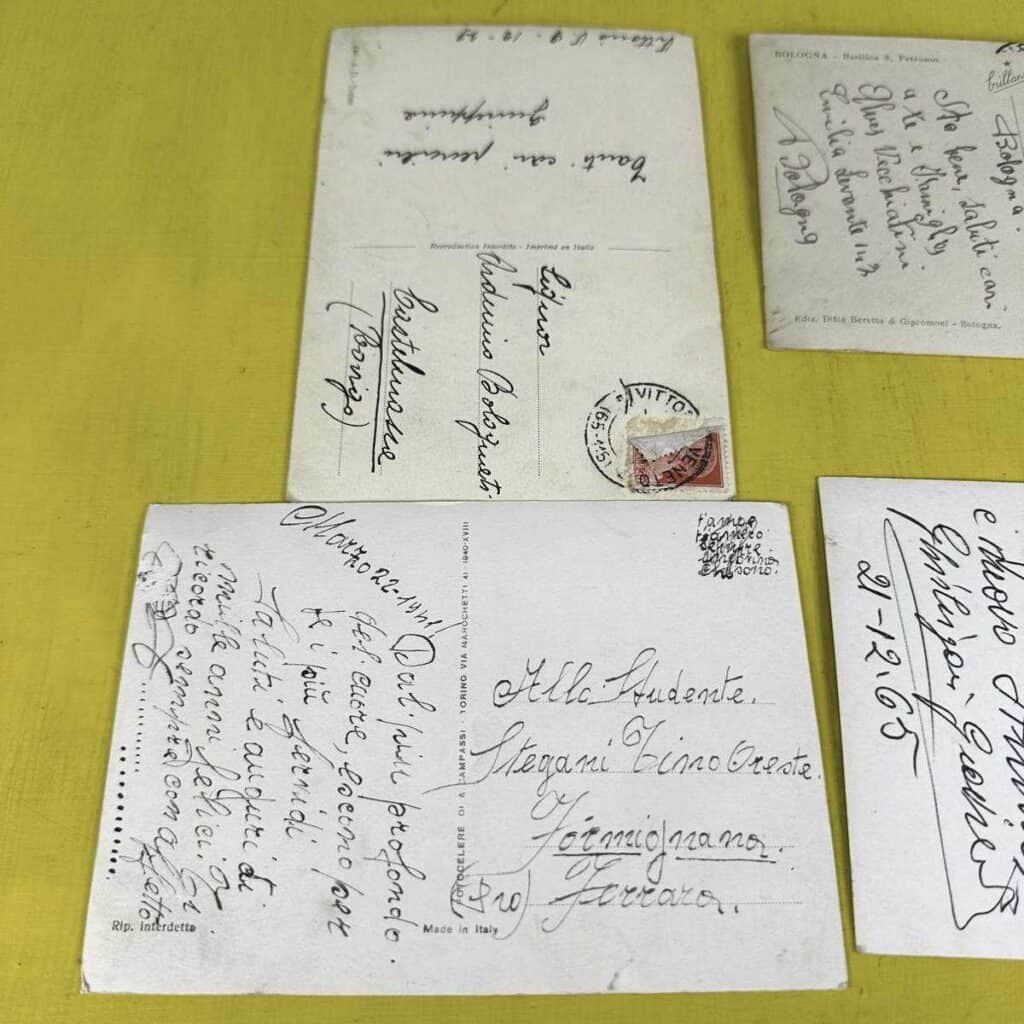 Vittorio V. 9-12-
Tanti cari pensieri
Giuseppina
Reproduction Interdite - Imprimé en Italie
Signor
Arduino Bolognesi
Castelmassa
(Rovigo)
VITTO
VENET
BOLOGNA - Basilica S. Petronio
Sto bene, saluti cari
a te e famiglia
Vecchiatini
Emilia Levante
Bologna
Bologna
Ediz. Ditta Beretta & Giacomoni - Bologna.
Marzo 22-1941
Dal più profondo
del cuore, escono per
te i più fervidi
saluti e auguri di
mille anni felici. Ti
ricordo sempre con affetto
Rip. Interdetta
FOTOCELERE DI A. CAMPASSI - TORINO VIA MAROCHETTI 41 1940-XVIII
Made in Italy
t'amo e
t'amerò
sempre
chi sono.
Allo Studente.
Stegani Timo Oreste.
Formignana.
(Pro) Ferrara.
e nuovo Anno
21-12-65